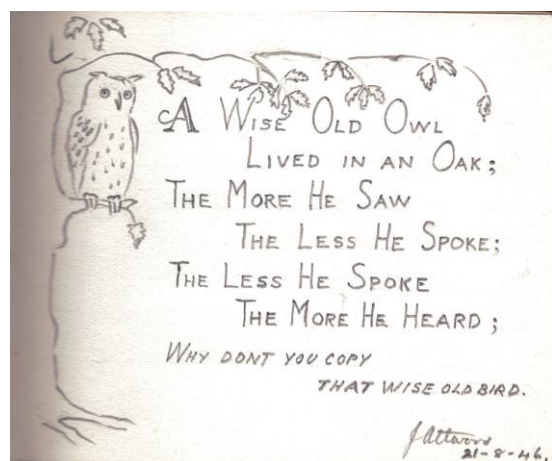 A Wise Old Owl
Lived in an Oak;
The More He Saw
The Less He Spoke;
The Less He Spoke
The More He Heard;
Why dont you copy
that wise old bird.
J Attwood
21-8-46.